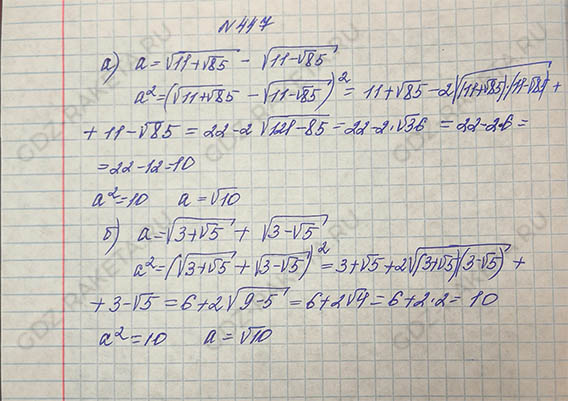 № 447
а) a = √(11+√85) - √(11-√85)
a² = (√(11+√85) - √(11-√85))² = 11+√85 - 2√((11+√85)·(11-√85)) +
+ 11-√85 = 22-2√(121-85) = 22-2·√36 = 22-2·6 =
= 22-12=10
a²=10 a=√10
б) a = √(3+√5) + √(3-√5)
a² = (√(3+√5) + √(3-√5))² = 3+√5+2√((3+√5)(3-√5)) +
+ 3-√5 = 6+2√(9-5) = 6+2√4 = 6+2·2 = 10
a²=10 a=√10
GDZ-RAKETA.RU